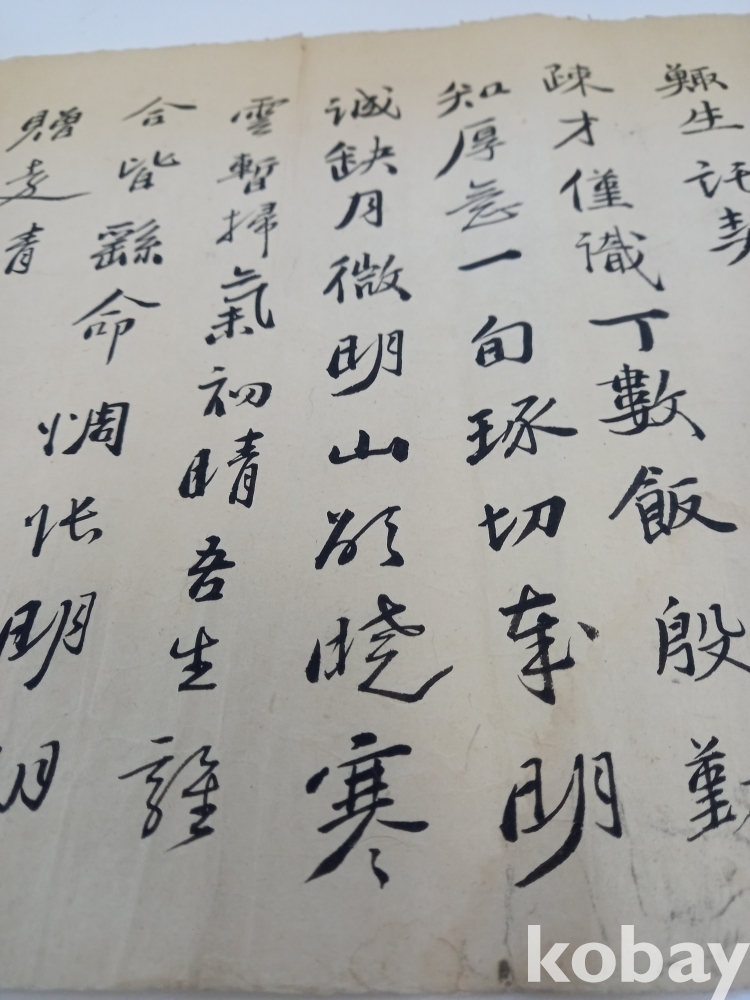 鯫生託契
疎才僅識丁數飯殷勤
知厚意一旬琢切奉明
誠缺月微明山欲曉寒
雲暫掃氣初晴吾生離
合皆繇命惆悵明
贈青
kobay